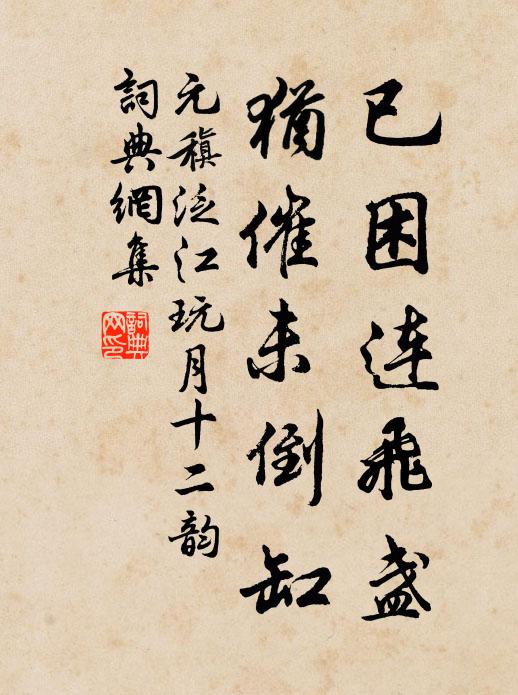 已困连飛盏
猶催未倒缸
元稹泛江玩月十二韵
詞典網集
詞典
网印